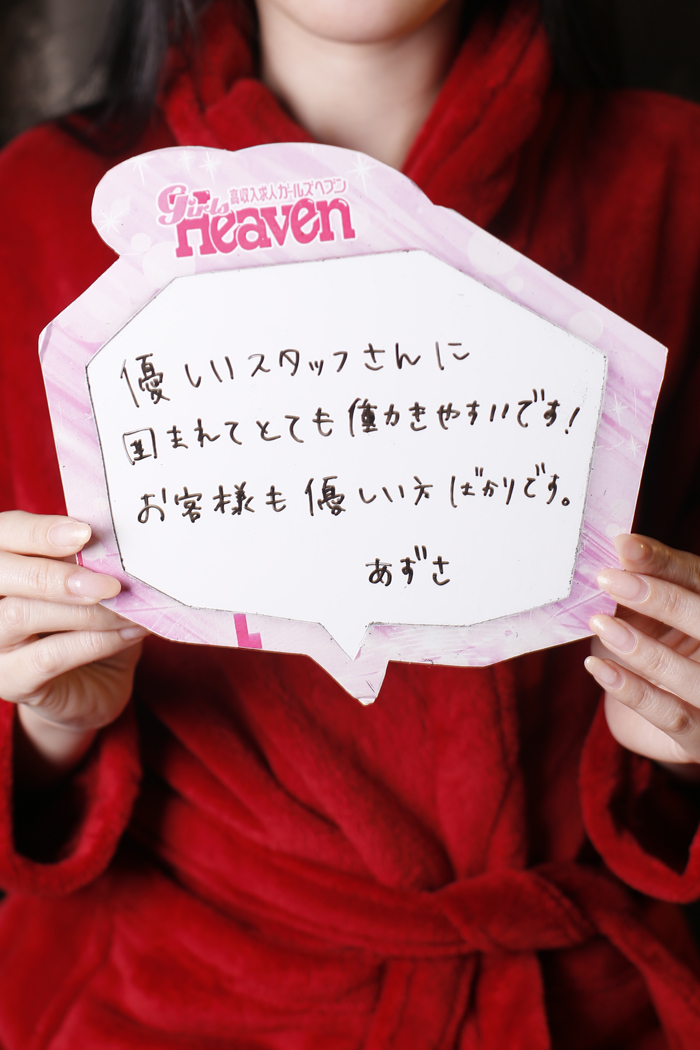 高収入求人ガールズヘブン
Girls
Heaven
優しいスタッフさんに
囲まれてとても働きやすいです!
お客様も優しい方ばかりです。
あずさ